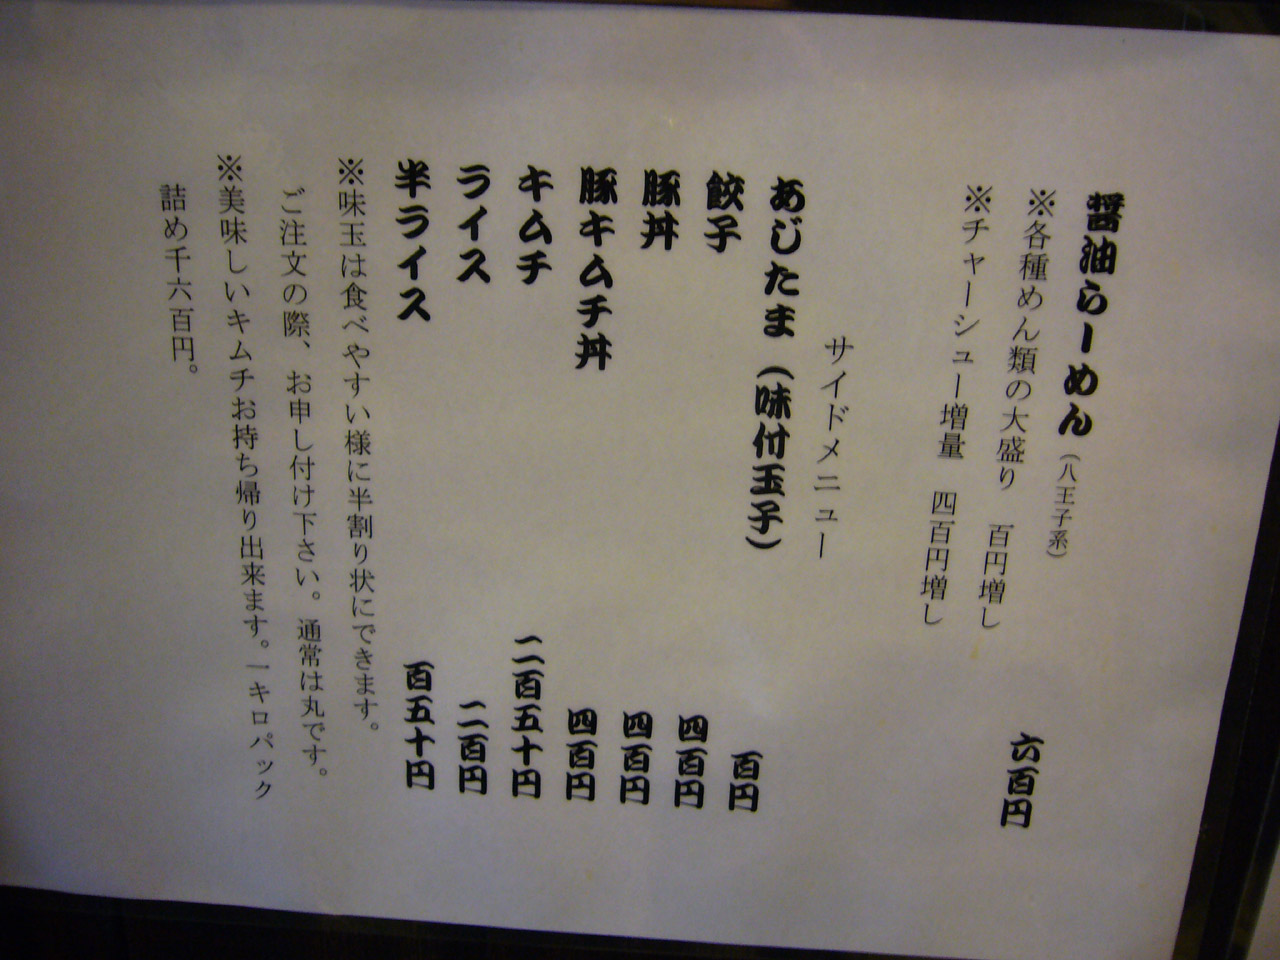 醤油らーめん（八王子系） 六百円
※各種めん類の大盛り 百円増し
※チャーシュー増量 四百円増し
サイドメニュー
あじたま（味付玉子） 百円
餃子 四百円
豚丼 四百円
豚キムチ丼 四百円
キムチ 二百五十円
ライス 二百円
半ライス 百五十円
※味玉は食べやすい様に半割り状にできます。
ご注文の際、お申し付け下さい。通常は丸です。
※美味しいキムチお持ち帰り出来ます。一キロパック
詰め千六百円。